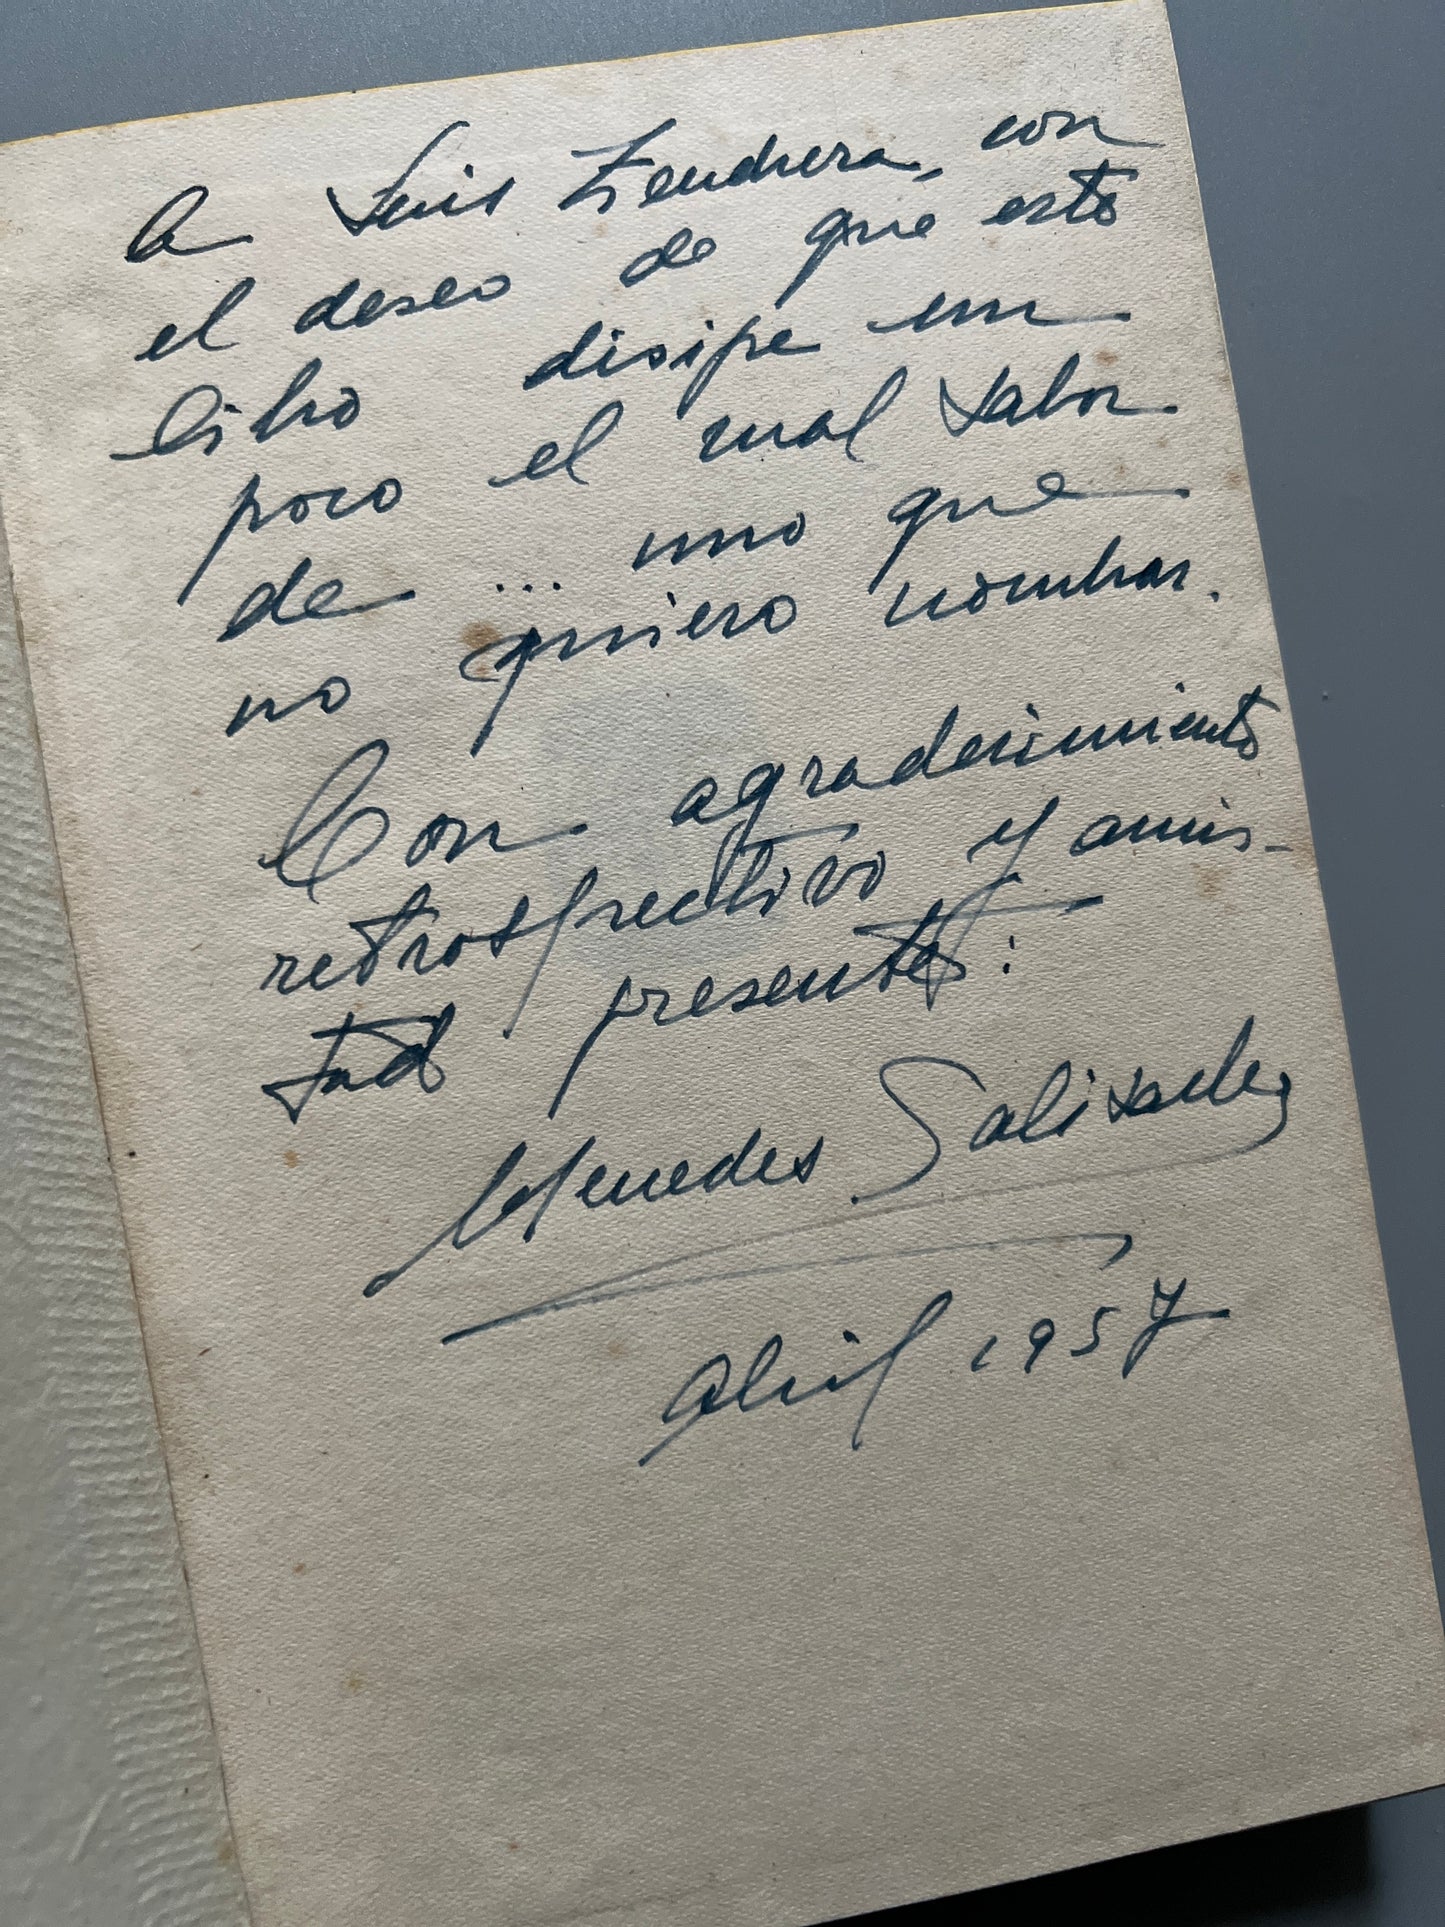 A Luis Zendrera, con
el deseo de que este
libro disipe un
poco el mal sabor
de ... uno que
no quiero nombrar.
Con agradecimiento
retrospectivo y amis-
tad presente:
Mercedes Salisachs
Abril 1957